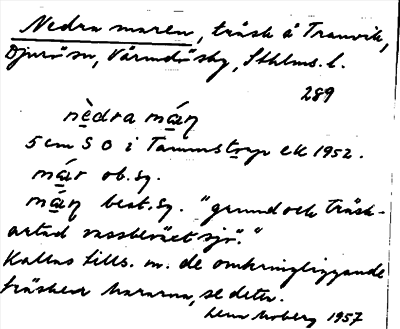 Nedra maren, träsk å Tranvik,
Djurö sn, Värmdö sby, Sthlms. l.
289
nèdra má̱ṇ
5 cm S O i Tammstorp ek 1952.
má̱r ob. sg.
má̱ṇ best. sg. "grund och träsk-
artad vassbeväxt sjö."
Kallas tills. m. de omkringliggande
träsken mararna, se detta.
Lena Moberg 1957